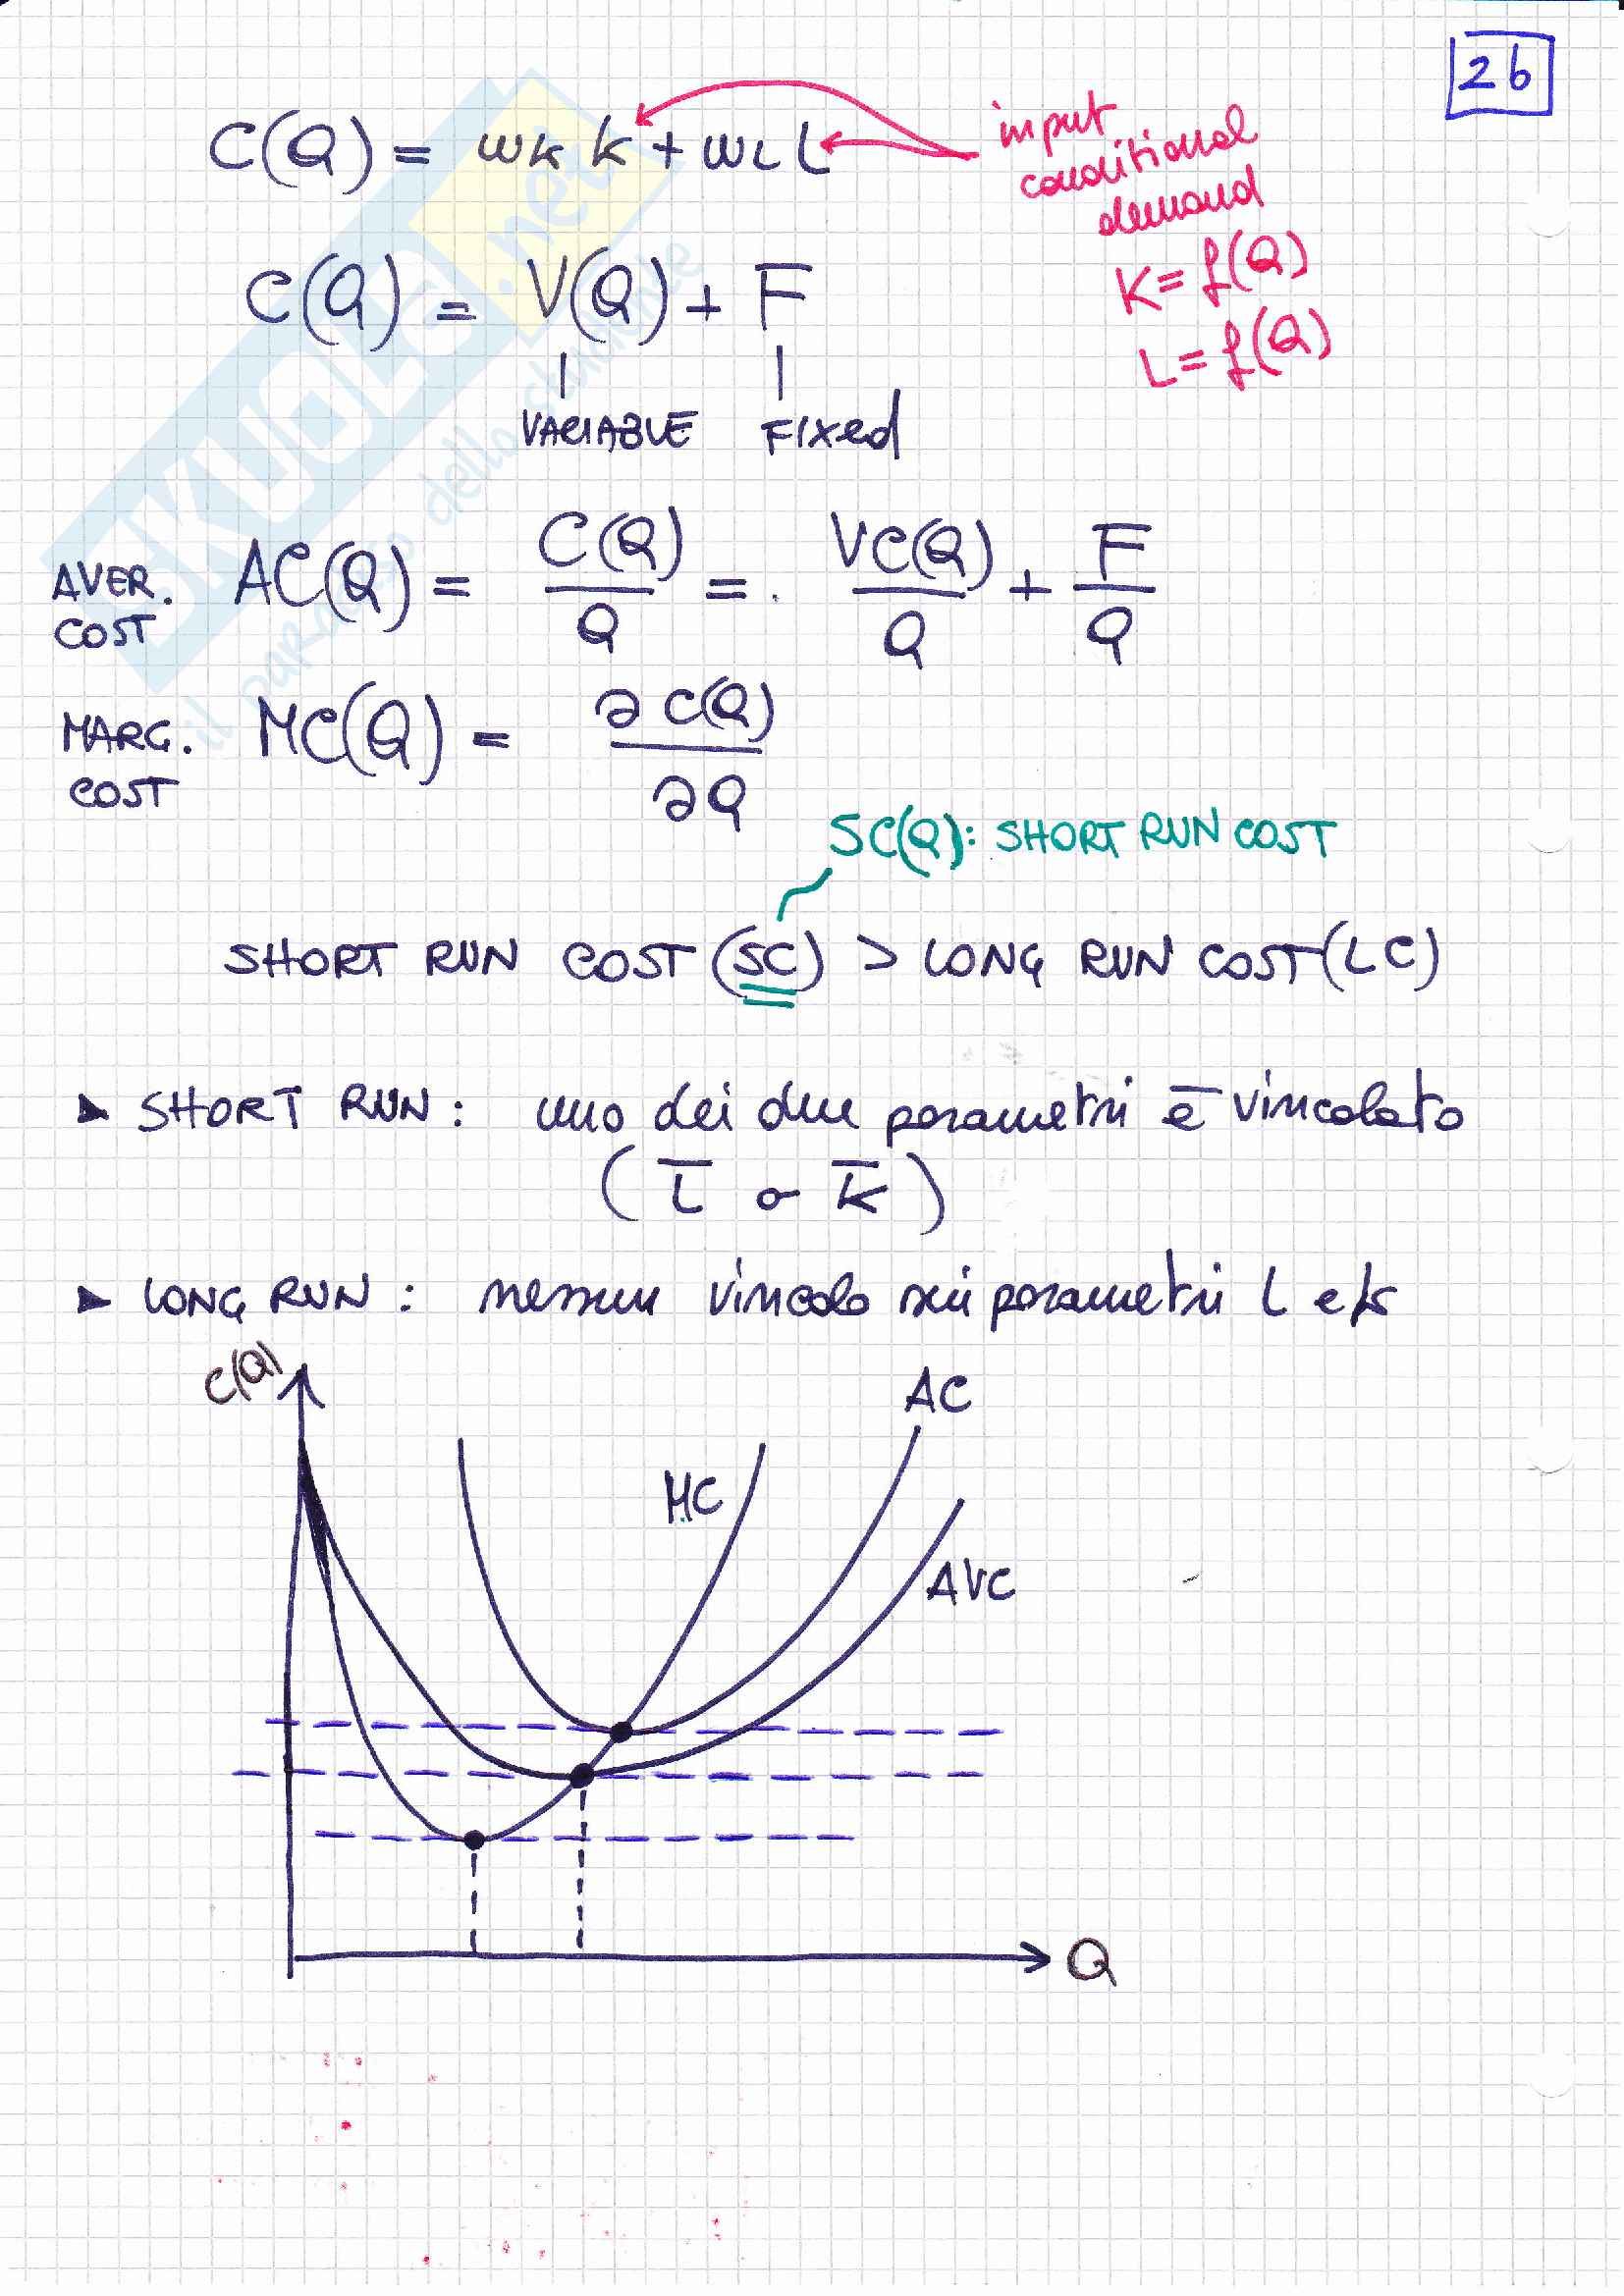 2b
C(Q) = wk k + wL L
input
conditional
demand
K = f(Q)
L = f(Q)
C(Q) = V(Q) + F
VARIABLE FIXed
AVER. COST AC(Q) = C(Q)/Q = VC(Q)/Q + F/Q
MARG. COST MC(Q) = ∂C(Q)/∂Q
SC(Q): SHORT RUN COST
SHORT RUN COST (SC) > LONG RUN COST (LC)
► SHORT RUN: uno dei due parametri è vincolato
(L̅ o K̅)
► LONG RUN: nessun vincolo sui parametri L e k
C(Q)
AC
MC
AVC
Q
SKUOLA.net
il paradiso dello studente